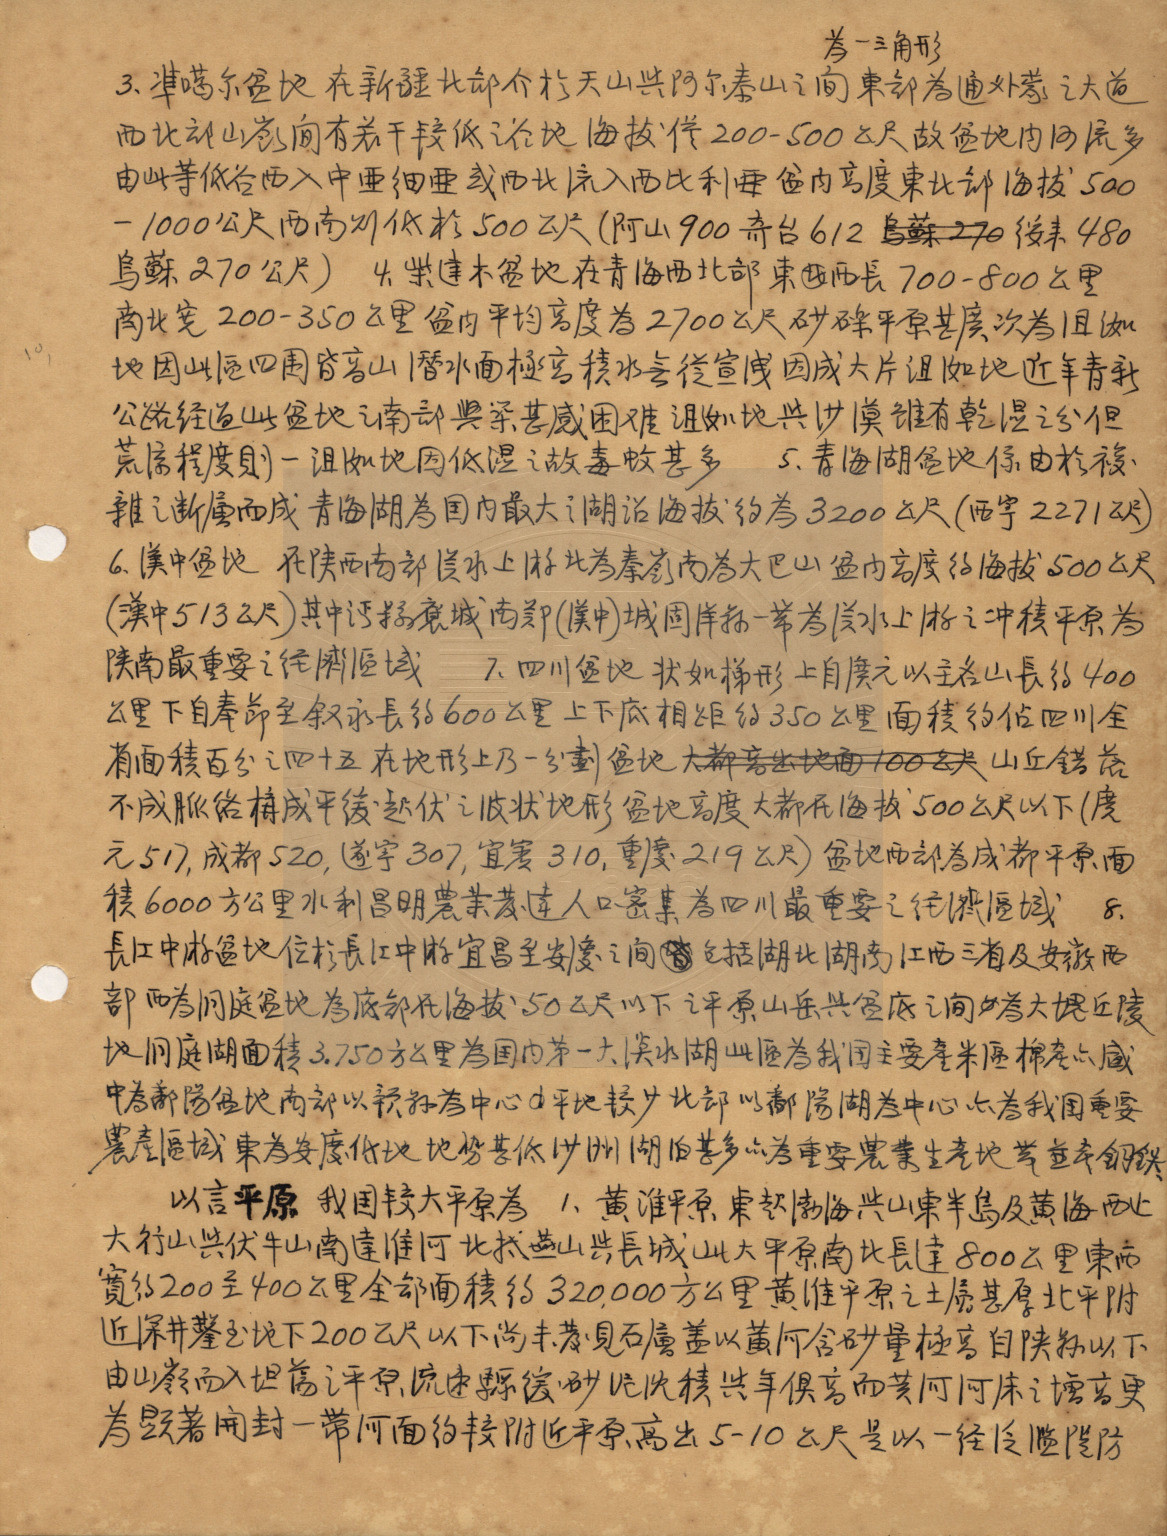 為一三角形
3. 準噶尔盆地 在新疆北部介於天山與阿尔泰山之间 東部為通外蒙之大道
西北部山嶺间有若干較低之谷地 海拔僅 200-500 公尺 故盆地内河流多
由此等低谷西入中亜細亜或西北流入西比利亜 盆内高度東北部海拔 500
-1000公尺 西南則低於500公尺 (阿山900 奇台612 烏蘇270 綏来480
烏蘇270公尺) 4. 柴達木盆地 在青海西北部 東西長 700-800 公里
南北宽 200-350 公里 盆内平均高度為 2700公尺 砂磧平原甚廣 次為沮洳
地 因此區四周皆高山 潛水面極高 積水無從宣洩 因成大片沮洳地 近年青新
公路经过此盆地之南部 興築甚感困难 沮洳地與沙漠雖有乾湿之分 但
荒凉程度則一 沮洳地因低湿之故毒蚊甚多 5. 青海湖盆地 係由於複
雜之断層而成 青海湖為国内最大之湖沼 海拔约為 3200 公尺 (西宁 2271公尺)
6. 漢中盆地 在陕西南部漢水上游 北為秦嶺 南為大巴山 盆内高度约海拔 500公尺
(漢中513公尺) 其中沔縣褒城南郑(漢中)城固洋縣一带為漢水上游之冲積平原 為
陕南最重要之经濟區域 7. 四川盆地 状如梯形 上自廣元以至名山長约 400
公里 下自奉節至叙永長约600公里 上下底相距约350公里 面積约佔四川全
省面積百分之四十五 在地形上乃一分劃盆地 大都高出地面100公尺 山丘錯落
不成脈络 構成平缓起伏之波状地形 盆地高度大都在海拔 500公尺以下 (廣
元517, 成都520, 遂宁307, 宜賓310, 重慶219公尺) 盆地西部為成都平原 面
積6000方公里 水利昌明 農業發達 人口密集 為四川最重要之经濟區域 8.
長江中游盆地 位於長江中游宜昌至安慶之间 包括湖北湖南江西三省及安徽西
部 西為洞庭盆地 為底部在海拔50公尺以下之平原 山岳與盆底之间為大塊丘陵
地 洞庭湖面積3.750方公里 為国内第一大淡水湖 此區為我国主要產米區 棉產亦盛
中為鄱陽盆地 南部以赣縣為中心 平地較少 北部以鄱陽湖為中心 亦為我国重要
農產區域 東為安慶低地 地势甚低 沙洲湖泊甚多 亦為重要農業生產地帶 並產銅鉄
以言平原 我国較大平原為 1. 黄淮平原 東起渤海與山東半島及黄海 西止
大行山與伏牛山 南達淮河 北抵燕山與長城 此大平原南北長達 800公里 東西
寬约200至400公里 全部面積约 320,000 方公里 黄淮平原之土層甚厚 北平附
近深井鑿至地下200公尺以下尚未發見石層 盖以黄河含砂量極高 自陕縣以下
由山嶺而入坦蕩之平原 流速驟缓 砂泥沈積與年俱高 而黄河河床之增高更
為顕著 開封一带河面约較附近平原高出5-10公尺 是以一经泛濫 隄防